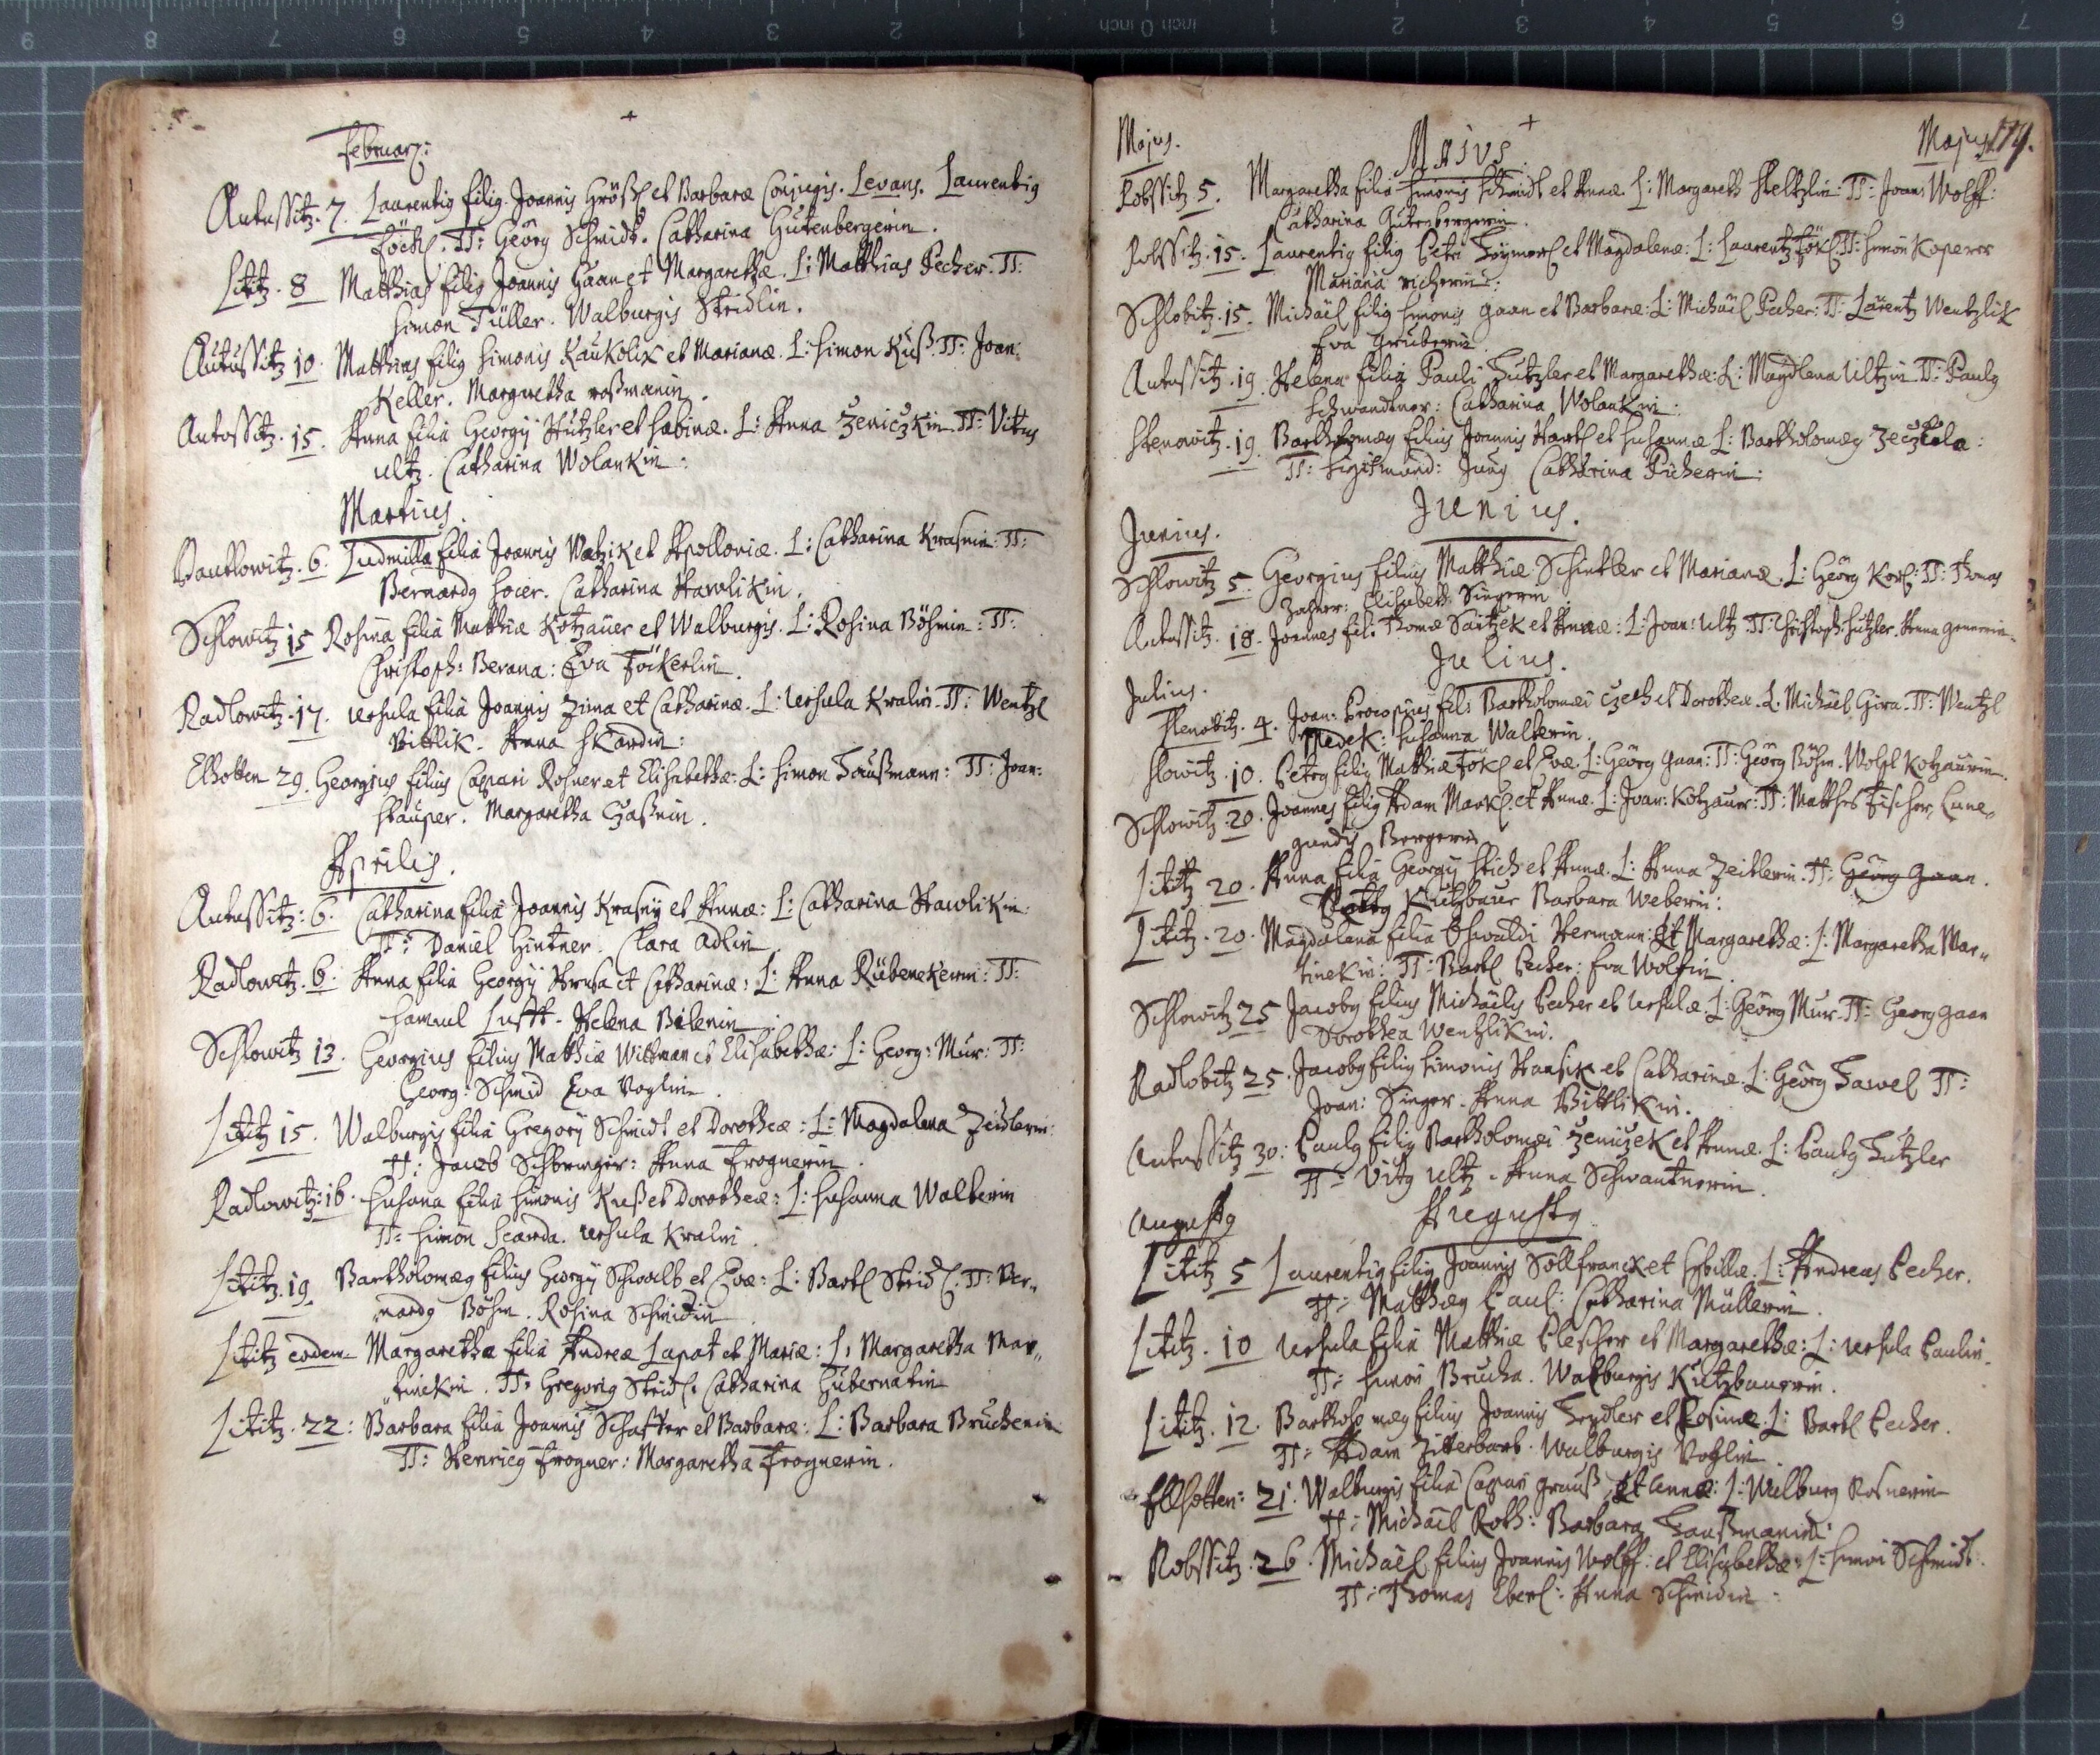 Februar:
Autussitz. 7. Laurentig filig Joannis Größl et Barbaræ Conjugis. Levans. Laurentig
Föckl. TT: Georg Schmidt. Catharina Gutenbergerin.
Lititz. 8 Matthias filig Joannis Gaan et Margarethæ. L: Matthias Pecher. TT:
Simon Tüller. Walburgis Stridlin.
Autussitz 10. Matthias filig Simonis Kaukolix et Marianæ. L: Simon Kuß. TT: Joan:
Keller. Margaretha roßmanin.
Autossitz. 15. Anna filia Georgij Hutzler et Sabinæ. L: Anna Zeniczkin. TT: Vitus
ultz. Catharina Wolankin:
Martius.
Dautlowitz. 6. Ludmilla filia Joannis Watzik et Apolloniæ. L: Catharina Krasnin. TT:
Bernardg Catharina Hawlikin.
Schlowitz 15 Rosina filia Matthiæ Kotzauer et Walburgis. L: Rosina Böhmin: TT:
Christoph: Berana: Eva Föckerlin.
Radlowitz. 17. Ursula filia Joannis Zima et Catharinæ. L: Ursula Kralin. TT: Wentzl
Bittlik. Anna Skardin:
Elhotten 29. Georgius filius Caspari Rosner et Elisabethæ: L: Simon Haußmann: TT: Joan:
Stauper. Margaretha Czaßnin.
Aprilis.
Autussitz: 6. Catharina filia Joannis Krasny et Annæ: L: Catharina Hawlikin:
TT: Daniel Hintner. Clara Adlin
Radlowitz. 6. Anna filia Georgij Hrusa et Catharinæ: L: Anna Rübenekerin: TT:
Samuel Lufft. Helena Bilenin.
Schlowitz 13. Georgius filius Matthiæ Wittman et Elisabethæ: L: Georg: Mur: TT:
Georg: Schmid Eva Voglin.
Lititz 15. Walburgis filia Gregorij Schmidt et Dorotheæ: L: Magdalena Zeidlerin:
TT: Jacob Anna Frognerin.
Radlowitz: 16. Susana filia Simonis Kuß et Dorotheæ: L: Susanna Walterin
TT: Simon Scarda. Ursula Kralin.
Lititz. 19. Bartholomæg filius Georgij Schwalb et Evæ: L: Bartl Stridl. TT: Ber„
nardg Böhm. Rosina Schmidin
Lititz eodem Margaretha filia Andreæ Lapat et Mariæ: L: Margaretha Mar„
„tinekin. TT: Gregorig Stridl. Catharina Gubernatin
Lititz. 22: Barbara filia Joannis Schaffer et Barbaræ: L: Barbara Bruchenin
TT: Henricg Frogner: Margaretha Frognerin.
Majus. Maius Majus 179.
Robssitz 5. Margaretha filia Simonis Schmidt et Annæ. L: Margareth Steltzlin. TT: Joan: Wolff:
Catharina Gutenbergerin.
Robssitz. 15. Laurentig filig Petri Hÿmerl et Magdalenæ: L: Laurentz Fökl. TT: Simon Koperer
Mariana richerin:
Schlobitz. 15. Michäel filig Simonis Gaan et Barbaræ: L: Michäel Pecher: TT: Laurentz Wentzlik
Eva Gruberin.
Autussitz. 19. Helena filia Pauli Hutzler et Margarethæ: L: Magdlena Ultzin. TT: Paulg
Schwandtner: Catharina Wolankin:
Stenowitz. 19. Bartholomæg filius Joannis Hartl et Susannæ L: Bartholomæg
TT: Sigismund: Jung Catharina Picherin:
Junius.
Junius.
Schlowitz 5. Georgius filius Matthiæ Schinkler et Marianæ. L: Georg Korl: TT: Thomas
Zahner: Elisabeth Singerin
Autussitz. 18. Joannes fil: Thomæ Saitzek et Annæ: L: Joan: Ultz. TT: Christoph: Hutzler. Anna
Julius.
Julius.
Stenobitz. 4. Joan: Procopius fil: Bartholomæi Czech et Dorotheæ. L. Michäel Gira. TT: Wentzl
Susanna Walterin.
Slowitz. 10. Petrg filig Matthiæ Fökl et Evæ. L: Georg Gaan: TT: Georg Böhm. Kotzaurin.
Schlowitz. 20. Joannes filig Adam Markl. et Annæ. L: Joan: Kotzauer: TT: Mathes Fischer, Cune„
gundis Bergerin
Lititz 20. Anna filia Georgij Stich et Annæ. L: Anna Zeitlerin. TT: Georg Gaan.
Kutzbaur Barbara Weberin:
Lititz. 20. Magdalena filia Oswaldi Hermann: Et Margarethæ: L: Margaretha Mar„
tinekin: TT: Bartl Pecher: Eva Wolfin
Schlowitz 25 Jacobg filius Michäelis Pecher et Ursulæ. L: Georg Mur. TT: Georg Gaan
Dorothea Wentzlikin.
Radlobitz 25. Jacobg filig Simonis Hansik et Catharinæ. L: Georg Hawel TT:
Joan: Singer. Anna Bittlikin.
Autussitz 30: Paulg filig Bartholomæi Zenizek et Annæ. L: Paulg Hutzler
TT: Vitg Ultz. Anna Schwantnerin.
Augustg Augustg
Lititz 5 Laurentig filig Joannis Söllfranck et Sybillæ. L: Andreas Pecher.
TT: Matthæg Paul: Catharina Müllerin.
Lititz. 10 Ursula filia Matthiæ Plescher et Margarethæ: L: Ursula Paulin.
TT: Simon Brucha. Walburgis Kutzbaurin.
Lititz. 12. Bartholomæg filius Joannis Heydler et Rosinæ. L: Bartl Pecher.
TT: Adam Zitterbart. Walburgis Voglin.
Ellhotten: 21. Walburgis filia Caspari Grauß, Et Annæ: L: Walburg Rosnerin
TT: Michäel Roth: Barbara Haußmanin:
Robssitz. 26. Michäel filius Joannis Wolff: et Elisabethæ: L: Simon Schmidt.
TT: Thomas Eberl: Anna Schmidin